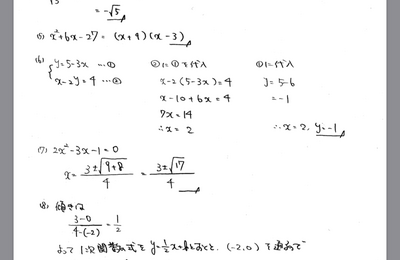 = -√5
(5) x²+6x-27 = (x+9)(x-3)
(6) { y=5-3x …① x-2y=4 …②
②に①を代入
x-2(5-3x)=4
x-10+6x=4
7x=14
∴x=2
①に代入
y=5-6
=-1
∴x=2, y=-1
(7) 2x²-3x-1=0
x= 3±√9+8 / 4 = 3±√17 / 4
(8) 傾きは
3-0 / 4-(-2) = 1/2
よって1次関数の式を y=1/2x+ とおくと、(-2,0)を通るので